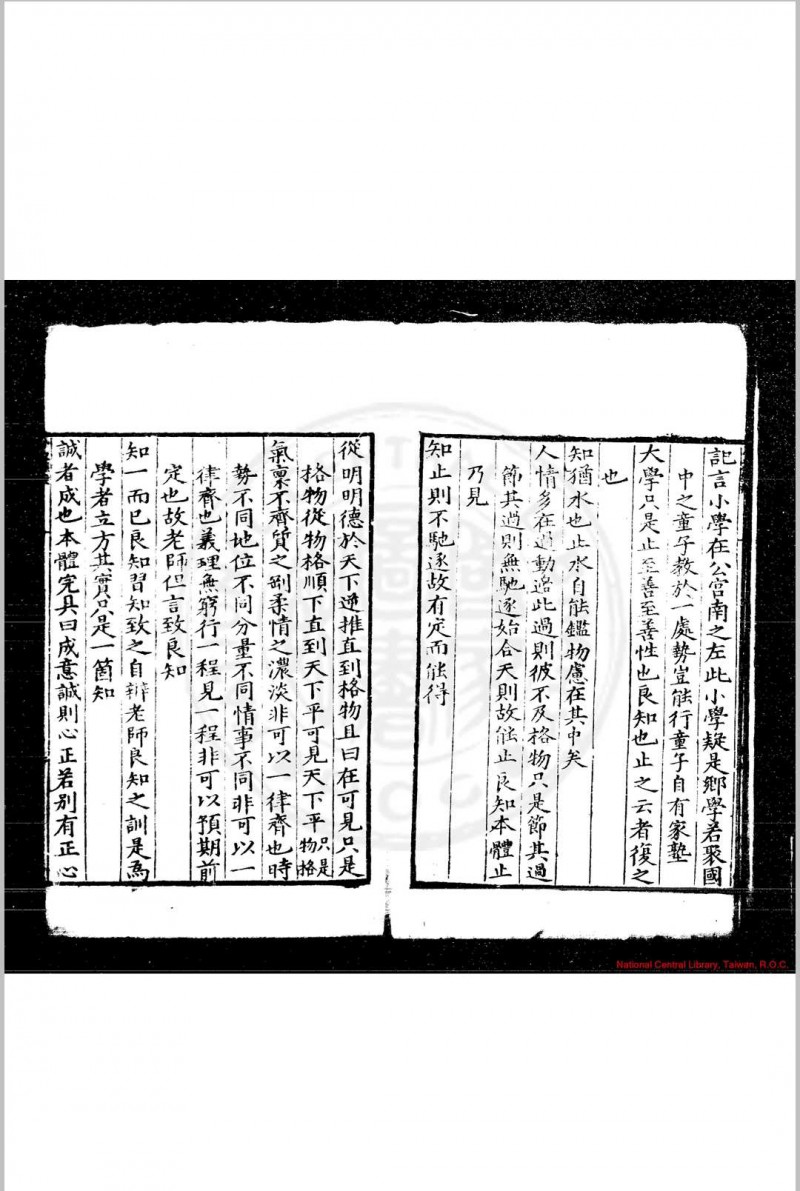 記言小學在公宮南之左此小學疑是鄉學若聚國
中之童子教於一處勢豈能行童子自有家塾
大學只是止至善至善性也良知也止之云者復之
也
知猶水也止水自能鑑物慮在其中矣
人情多在過動邊此過則彼不及格物只是節其過
節其過則無馳逐始合天則故能止良知本體止
乃見
知止則不馳逐故有定而能得
從明明德於天下逆推直到格物且曰在可見只是
格物從物格順下直到天下平可見天下平只是物格
氣稟不齊質之剛柔情之濃淡非可以一律齊也時
勢不同地位不同分量不同情事不同非可以一
律齊也義理無窮行一程見一程非可以預期前
定也故老師但言致良知
知一而已良知習知致之自辯老師良知之訓是為
學者立方其實只是一箇知
誠者成也本體完具曰成意誠則心正若別有正心
National Central Library, Taiwan, R.O.C.